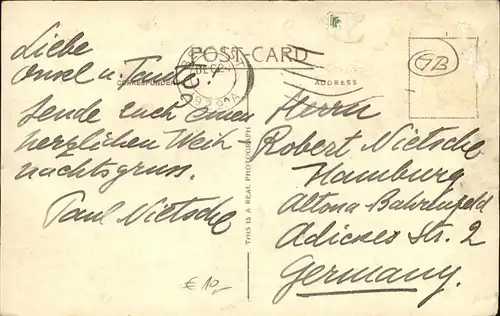 POST-CARD
CORRESPONDENCE
ADDRESS
Liebe
Onkel u. Tante
Sende Euch einen
herzlichen Weih-
nachtsgruss.
Paul Nietsche
THIS IS A REAL PHOTOGRAPH
GB
Herrn
Robert Nietsche
Hamburg
Altona-Bahrenfeld
Adickes Str. 2
Germany.
€ 10,-